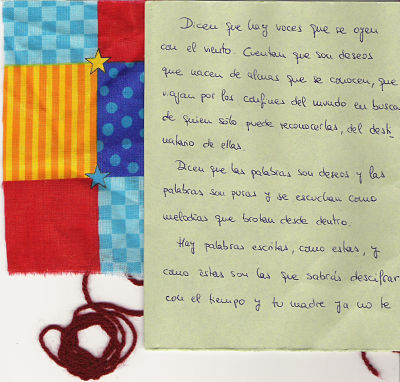 Dicen que hay voces que se oyen
con el viento. Cuentan que son deseos
que nacen de almas que se conocen, que
viajan por los confines del mundo en busca
de quien sólo puede reconocerlas, del desti-
natario de ellas.
Dicen que las palabras son deseos y las
palabras son puras y se escuchan como
melodías que brotan desde dentro.
Hay palabras escritas, como estas, y
como éstas son las que sabrás descifrar
con el tiempo y tu madre ya no te